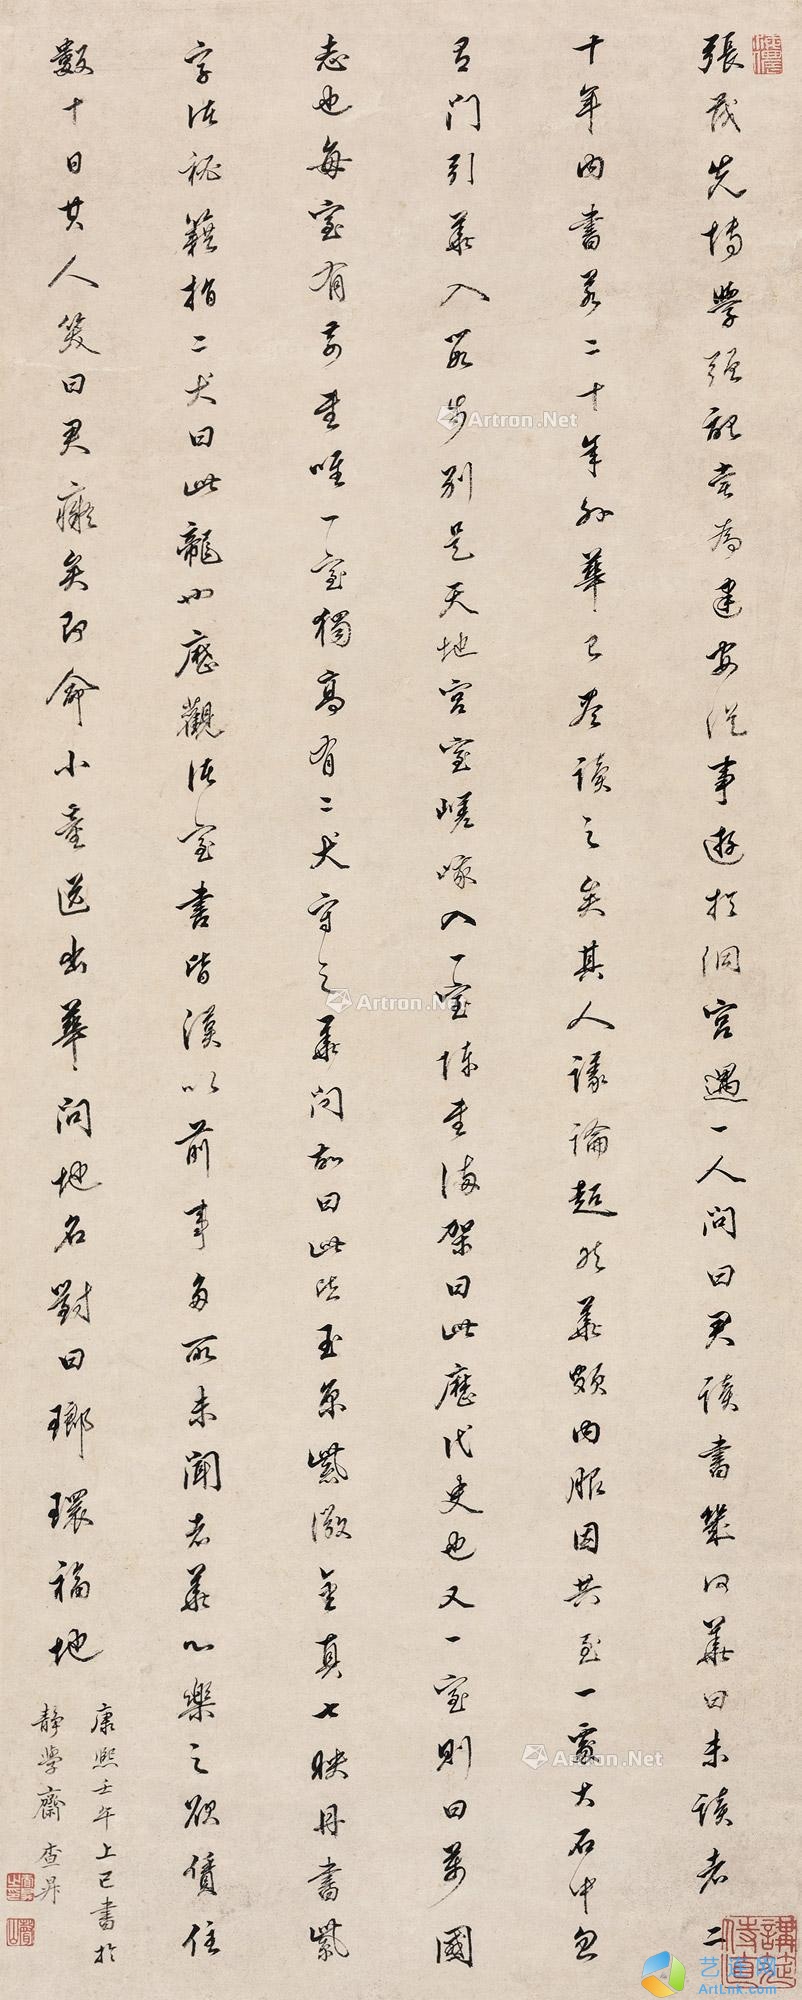 張茂先博學強記嘗為建安從事遊於洞宮遇一人問曰君讀書幾何華曰未讀者二
十年內書若二十年外華已盡讀之矣其人議論超然華頗內服因共至一處大石中忽
有門引華入數步別是天地宮室嵯峨入一室陳書滿架曰此歷代史也又一室則曰萬國
志也每室有奇書唯一室獨高有二犬守之華問故曰此皆玉京紫微金真七映丹書紫
字諸秘籍指二犬曰此龍也歷觀諸室書皆漢以前事多所未聞者華心樂之欲賃住
數十日其人笑曰君癡矣即命小童送出華問地名對曰瑯環福地
康熙壬午上巳書於
靜學齋 查昇
講筵侍直
Artron.Net
Artron.Net
Artron.Net
Artron.Net
艺连网
ArtLnk.com